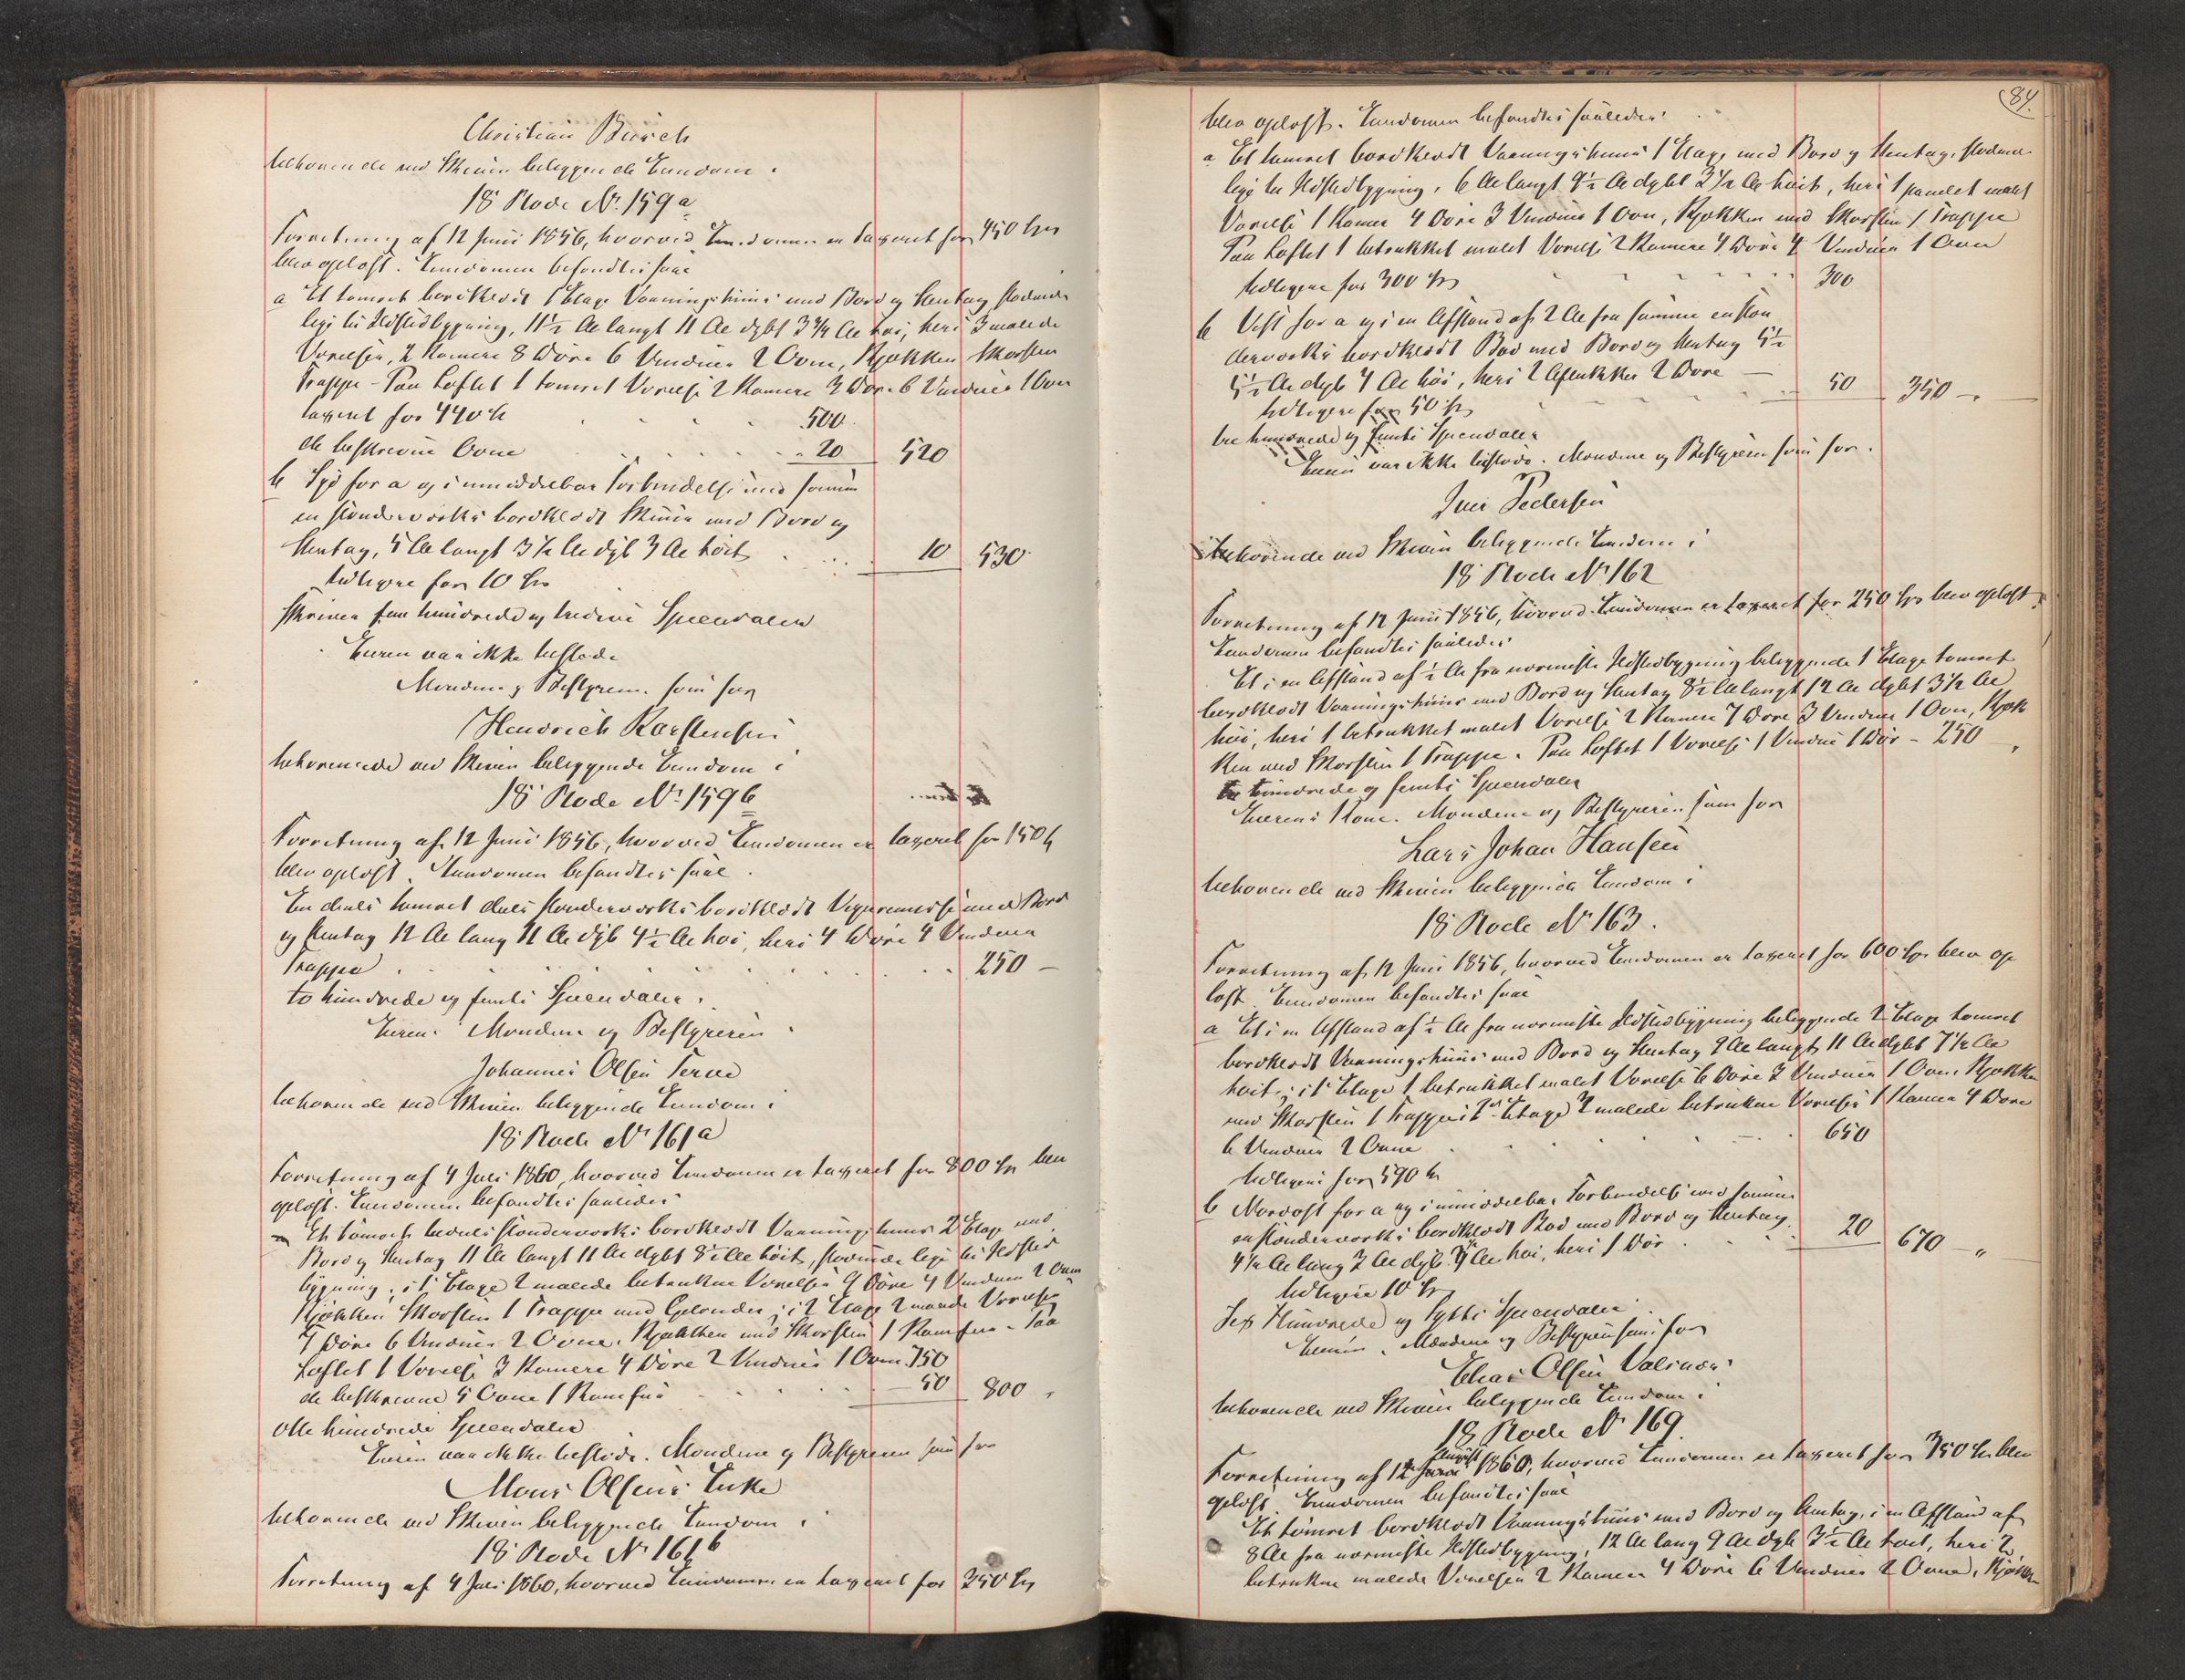 Christian Büsch
tilhørende ved Skeien beliggende Eiendom i
18 Rode No 159a
Forretning af 12 Juni 1856, hvorved Eiendommen er taxeret for 450 Spd
blev oplæst. Eiendommen befandtes saal
a Et tømret bordklædt 1 Etage Vaaningshuus med Bord og Steentag stødende
lige til Ildstedbygning, 11½ Al langt 11 Al dybt 3¾ Al høi, heri 3 malede
Værelser, 2 Kamere 8 Døre 6 Vinduer 2 Ovne, Kjøkken Skorsten
Trappe – Paa Loftet 1 tømret Værelse 2 Kamere 3 Døre 6 Vinduer 1 Ovn
taxeret for 440 Sp 500
de beskrevne Ovne 20 520
b Syd for a og i umiddelbar Forbindelse med samme
en Stænderværks bordklædt Skuur med Bord og
Steentag, 5 Al langt 3½ Al dyb 3 Al høit 10 530
tidligere for 10 Spd
Skriver fem hundrede og tredive Speciedaler
Eieren var ikke tilstede
Mændene og Bestyreren som før
Hendrich Karstensen
tilhørende ved Skeien beliggende Eiendom i
18 Rode No 159b
Forretning af 12 Juni 1856, hvorved Eiendommen er taxeret for 150 Sp
blev oplæst. Eiendommen befandtes saal.
En deels tømret deels Stænderværks bordklædt med Bord
og Steentag 12 Al lang 11 Al dyb 4½ Al høi, heri 4 Døre 4 Vinduer
Trappe 250 –
to hundrede og femti Speciedaler.
Eieren. Mændene og Bestyreren
Johannes Olsen
tilhørende ved Skeien beliggende Eiendom i
18 Rode No 161a
Forretning af 4 Juli 1860, hvorved Eiendommen er taxeret for 800 Spd blev
oplæst. Eiendommen befandtes saaledes
a Et tømret tildeels Stænderværks bordklædt Vaaningshuus 2 Etage med
Bord og Steentag 11 Al langt 11 Al dybt 8½ Al høit, stødende lige til Ildsted
bygning, i 1ste Etage 2 malede betrukne Værelser 9 Døre 4 Vinduer 2 Ovne
Kjøkken Skorsten 1 Trappe med Gelænder, i 2 Etage 2 malede Værelser
7 Døre 6 Vinduer 2 Ovne, Kjøkken med Skorsten 1 Komfur – Paa
Loftet 1 Værelse 3 Kamere 4 Døre 2 Vinduer 1 Ovn 750
de beskrevne 5 Ovne 1 Komfur 50 800
Otte hundrede Speciedaler
Eieren var ikke tilstede. Mændene og Bestyreren som før
Mons Olsens Enke
tilhørende ved Skeien beliggende Eiendom i
18 Rode No 161b
Forretning af 4 Juli 1860, hvorved Eiendommen er taxeret for 350 Spd
84.
blev oplæst. Eiendommen befandtes saaledes:
a Et tømret bordklædt Vaaningshuus 1 Etage med Bord og Steentag, stødende
lige til Ildstedbygning, 6 Al langt 9½ Al dybt 3½ Al høit, heri 1 panelet malet
Værelse 1 Kamer 4 Døre 3 Vinduer 1 Ovn, Kjøkken med Skorsten 1 Trappe
Paa Loftet 1 betrukket malet Værelse 2 Kamere 4 Døre 4 Vinduer 1 Ovn
tidligere for 300 Spd 300
b Vest for a og i en Afstand af 2 Al fra samme en Stæn
derværks bordklædt Bod med Bord og Steentag 5½
5½ Al dyb 4 Al høi, heri 2 Aflukker 2 Døre 50 350 –
tidligere for 50 Spd
tre hundrede og femti Speciedaler
Eieren var ikke tilstede. Mændene og Bestyreren som før.
Jens Pedersen
tilhørende ved Skeien beliggende Eiendom i
18 Rode No 162
Forretning af 12 Juni 1856, hvorved Eiendommen er taxeret for 250 Spd blev oplæst
Eiendommen befandtes saaledes:
Et i en Afstand af ½ Al fra nærmeste Ildstedbygning beliggende 1 Etage tømret
bordklædt Vaaningshuus med Bord og Steentag 8½ Al langt 12 Al dybt 3½ Al
høi, heri 1 betrukket malet Værelse 2 Kamere 7 Døre 3 Vinduer 1 Ovn, Kjøk
ken med Skorsten 1 Trappe. Paa Loftet 1 Værelse 1 Vindue 1 Dør – 250
to hundrede og femti Speciedaler
Eierens Kone. Mændene og Bestyreren som før
Lars Johan Hansen
tilhørende ved Skeien beliggende Eiendom i
18 Rode No 163.
Forretning af 12 Juni 1856, hvorved Eiendommen er taxeret for 600 Spd blev op
læst. Eiendommen befandtes saal
a Et i en Afstand af ½ Al fra nærmeste Ildstedbygning beliggende 2 Etage tømret
bordklædt Vaaningshuus med Bord og Steentag 9 Al langt 11 Al dybt 7½ Al
høit, i 1ste Etage 1 betrukket malet Værelse 6 Døre 3 Vinduer 1 Ovn, Kjøkken
med Skorsten 1 Trappe i 2den Etage 2 malede betrukne Værelser 1 Kamer 4 Døre
6 Vinduer 2 Ovne 650
tidligere for 590 Sp
b Nordost for a og i umiddelbar Forbindelse med samme
en Stænderværks bordklædt Bod med Bord og Steentag
4½ Al lang 3 Al dyb 3¼ Al høi, heri 1 Dør 20 670 –
tidligere 10 Spd
Sex Hundrede og sytti Speciedaler
Eieren. Mændene og Bestyreren som før
Elias Olsen
tilhørende ved Skeien beliggende Eiendom i
18 Rode No 169.
Forretning af 12 August 1860, hvorved Eiendommen er taxeret for 350 Spd blev
oplæst. Eiendommen befandtes saal
Et tømret bordklædt Vaaningshuus med Bord og Steentag, i en Afstand af
8 Al fra nærmeste Ildstedbygning, 12 Al lang 9 Al dyb 3½ Al høit, heri 2
betrukne malede Værelser 2 Kamere 4 Døre 6 Vinduer 2 Ovne, Kjøkken